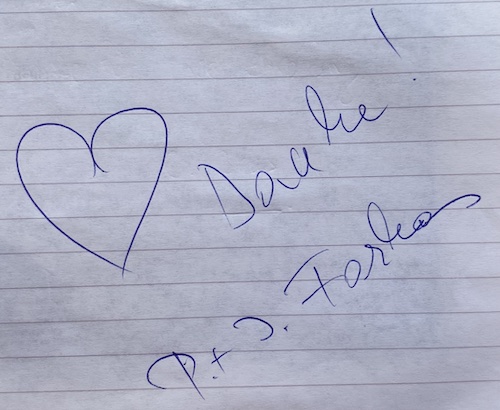 Danke!
P. + J. Farkas